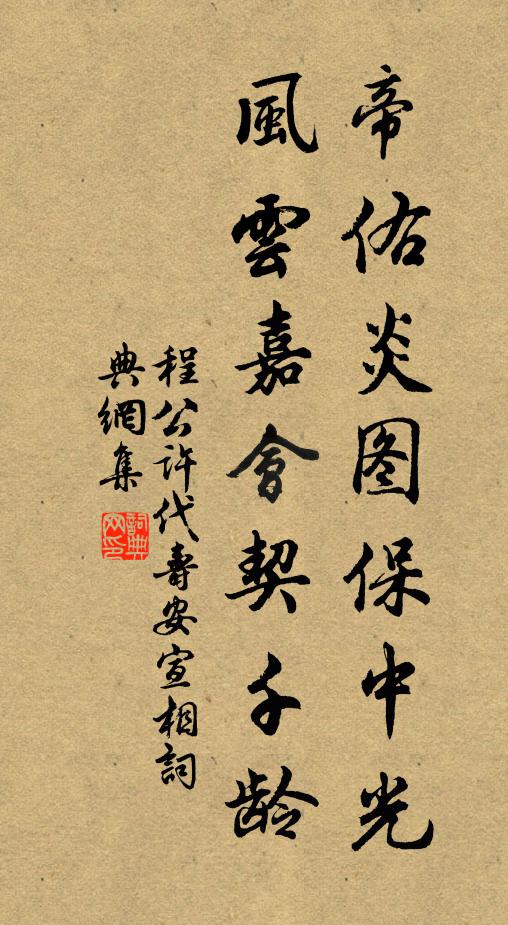 帝佑炎图保中光
風雲嘉會契千龄
程公許代壽安宣相詞
典網集
詞典网印